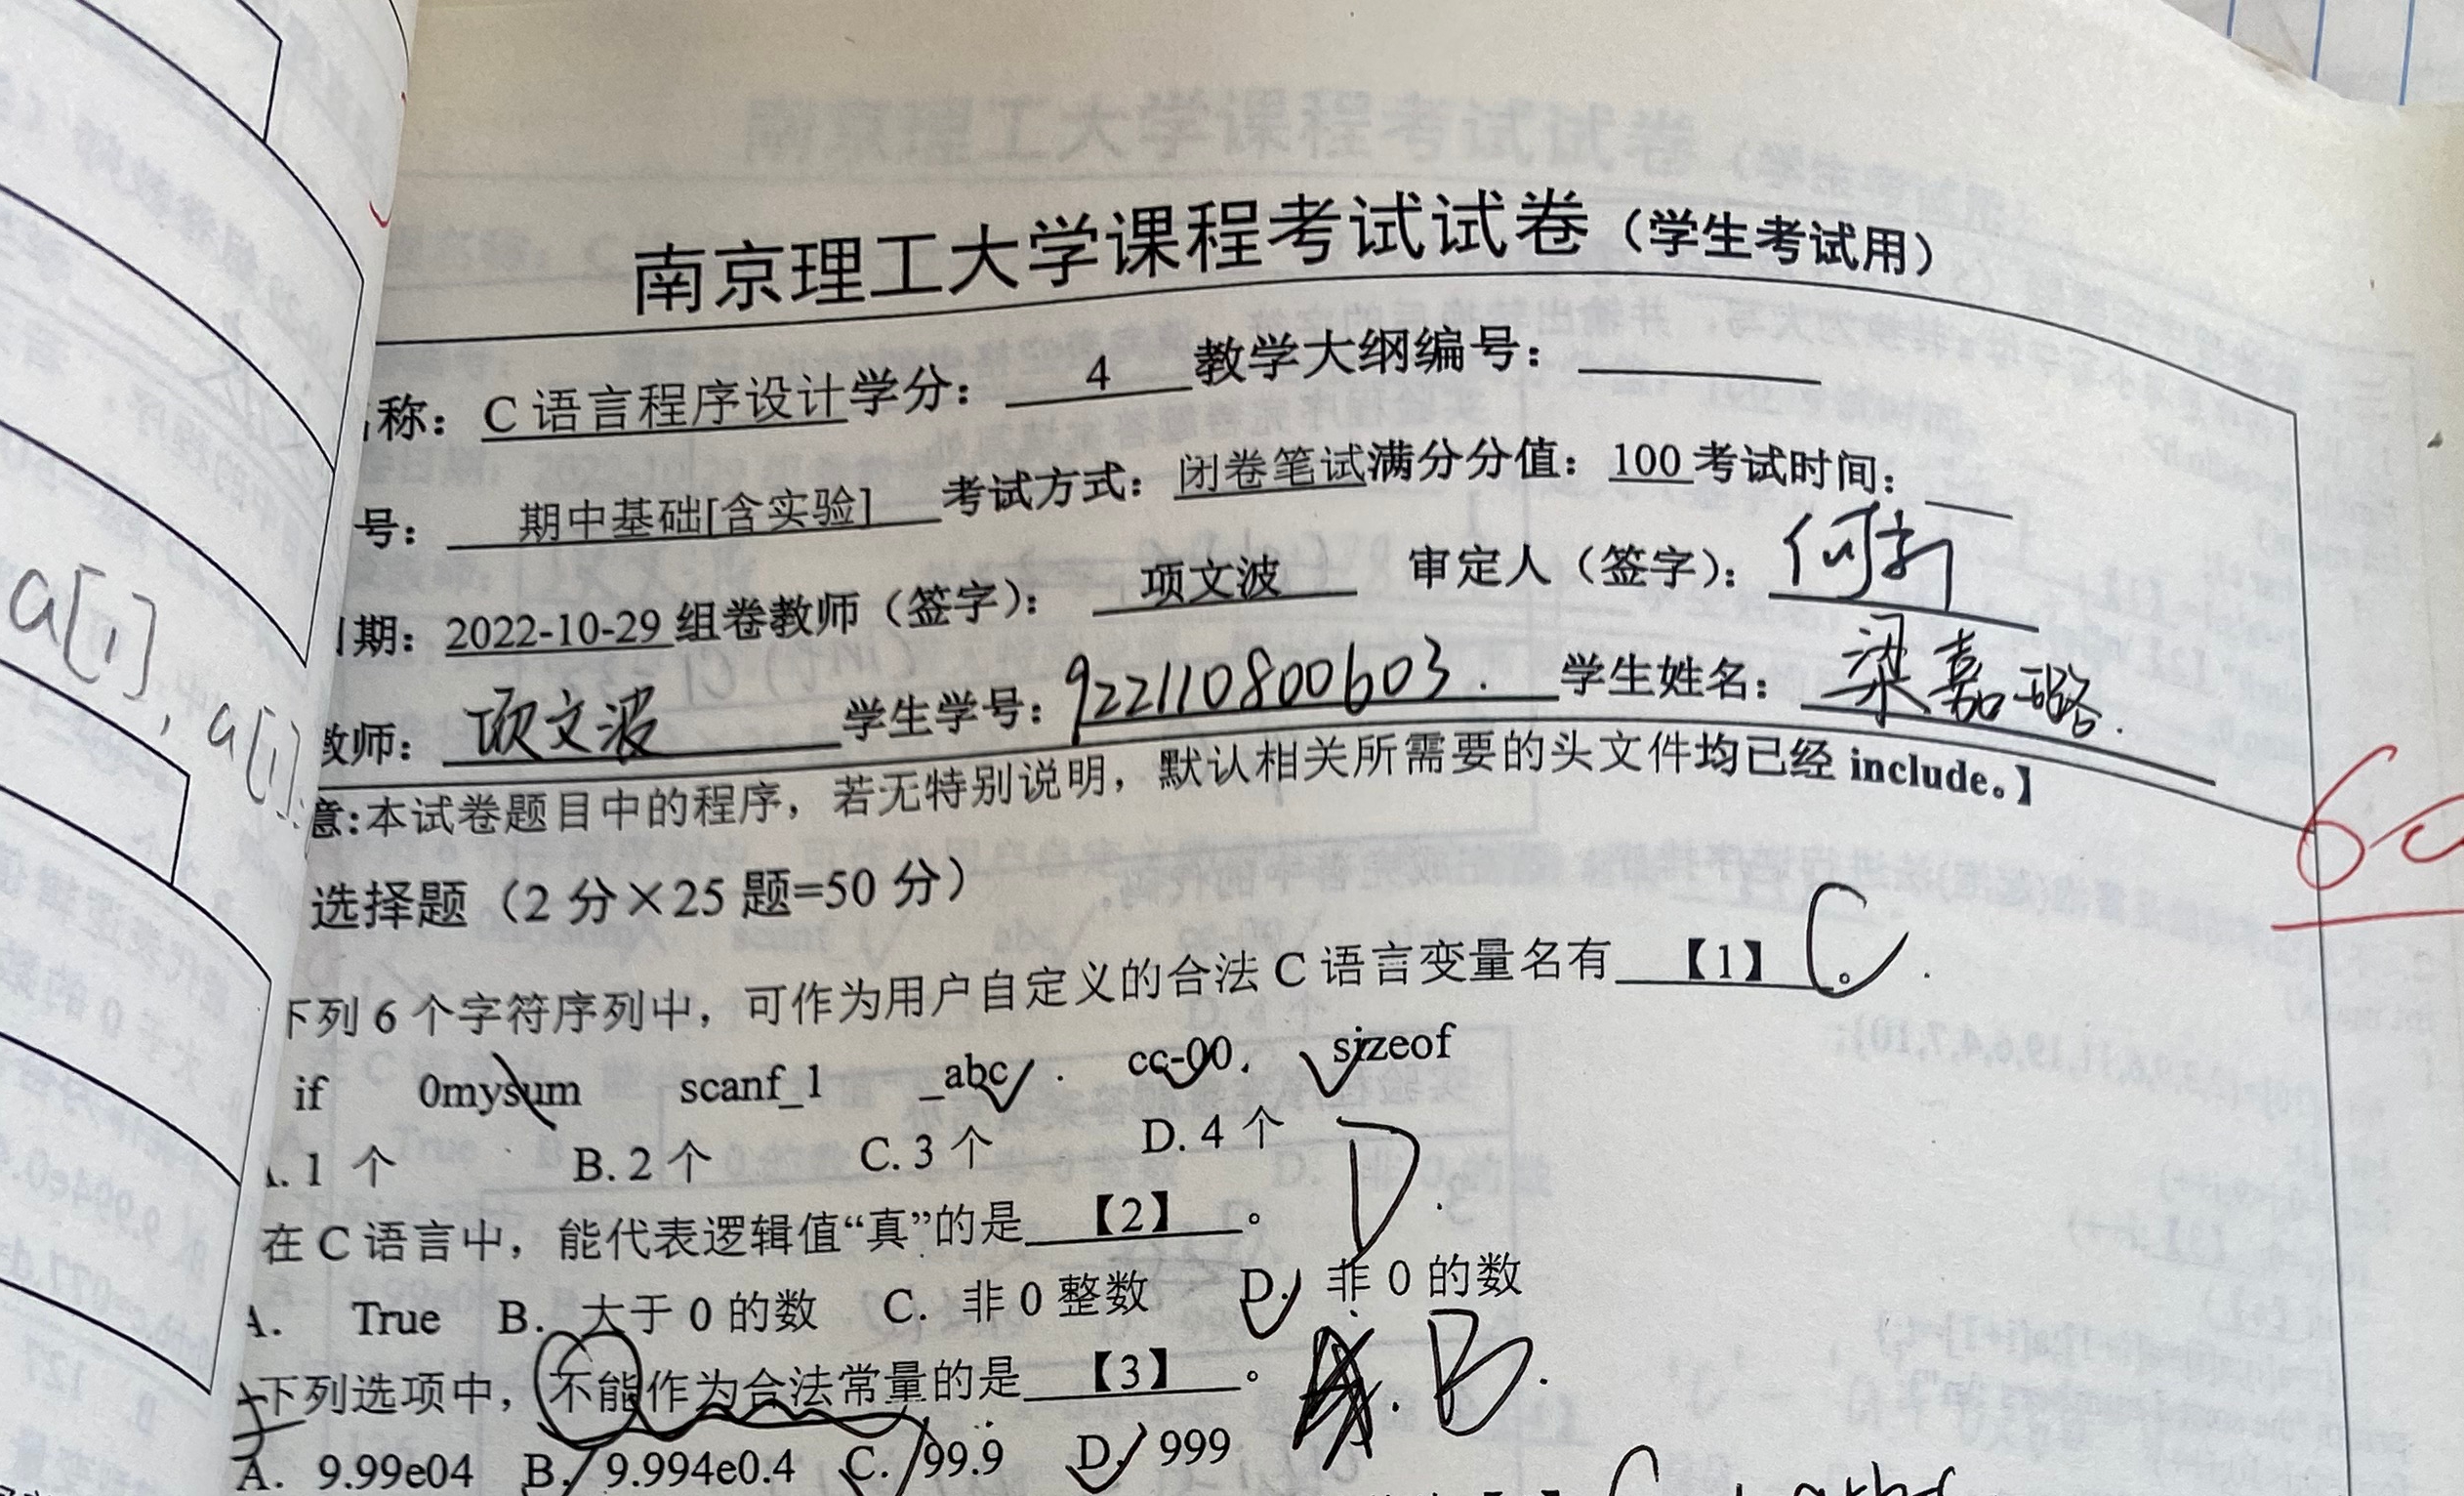 南京理工大学课程考试试卷（学生考试用）
称：C 语言程序设计学分： 4 教学大纲编号：
号： 期中基础[含实验] 考试方式：闭卷笔试满分分值：100 考试时间：
期：2022-10-29 组卷教师（签字）： 项文波 审定人（签字）：
教师： 项文波 学生学号：922110800603. 学生姓名： 梁嘉璐.
意:本试卷题目中的程序，若无特别说明，默认相关所需要的头文件均已经 include。】
选择题（2 分×25 题=50 分）
下列 6 个字符序列中，可作为用户自定义的合法 C 语言变量名有 【1】 。 C
if 0mysum scanf_1 _abc cc-00 sizeof
1 个 B. 2 个 C. 3 个 D. 4 个
在 C 语言中，能代表逻辑值“真”的是 【2】 。 D.
A. True B. 大于 0 的数 C. 非 0 整数 D. 非 0 的数
下列选项中，不能作为合法常量的是 【3】 。 B.
A. 9.99e04 B. 9.994e0.4 C. 99.9 D. 999
a[i], a[i]